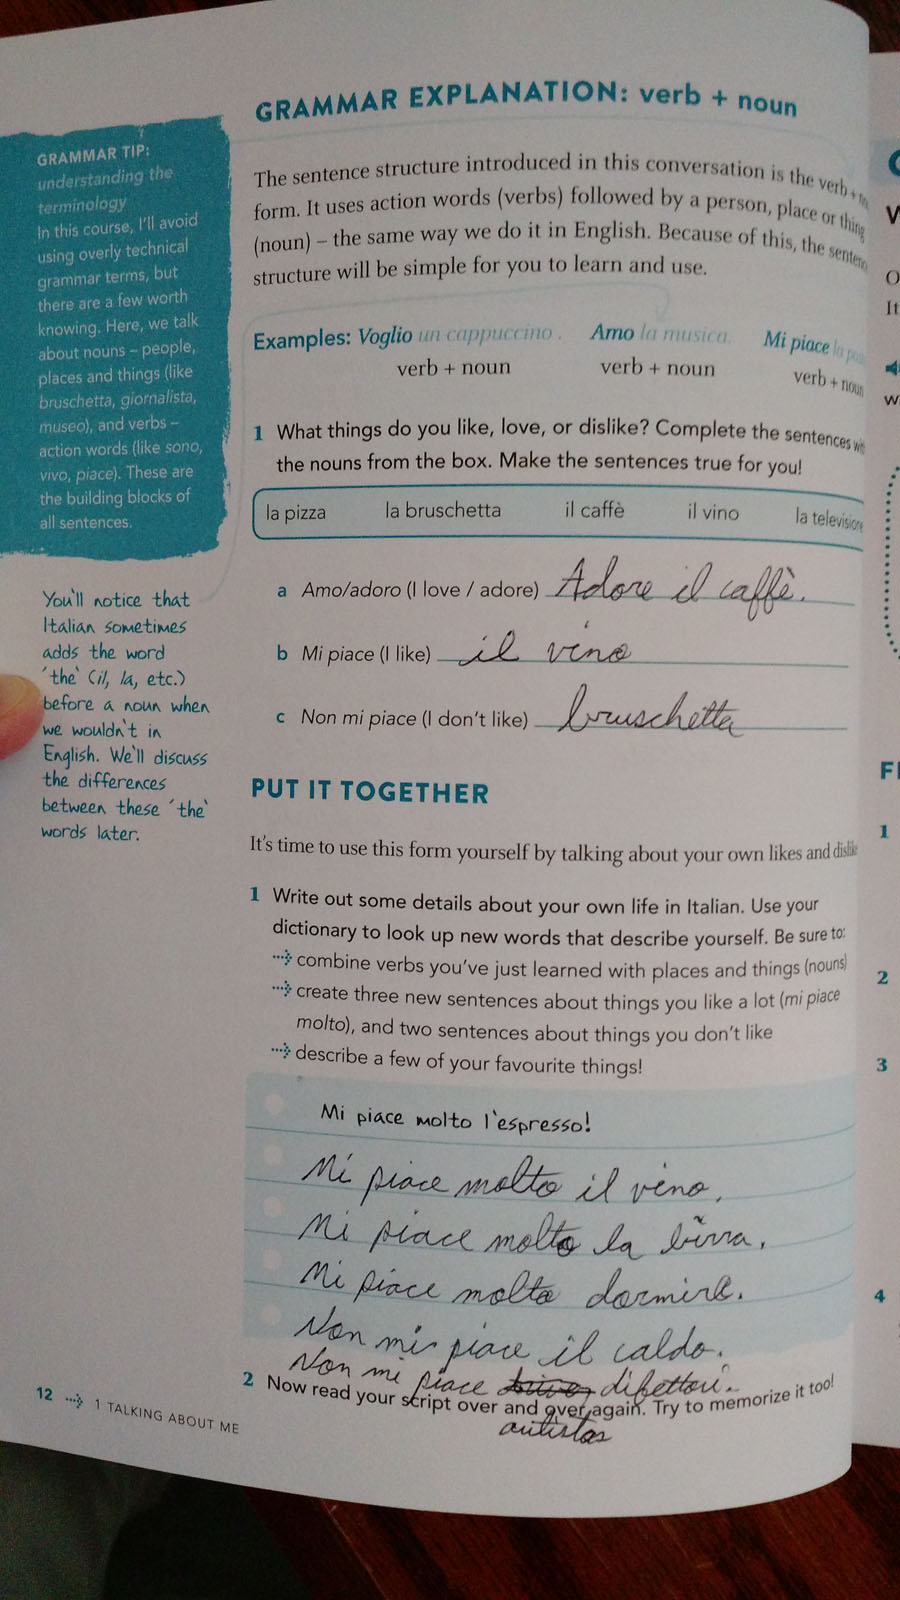 GRAMMAR EXPLANATION: verb + noun
GRAMMAR TIP:
understanding the
terminology
In this course, I'll avoid
using overly technical
grammar terms, but
there are a few worth
knowing. Here, we talk
about nouns – people,
places and things (like
bruschetta, giornalista,
museo), and verbs –
action words (like sono,
vivo, piace). These are
the building blocks of
all sentences.
You'll notice that
Italian sometimes
adds the word
'the' (il, la, etc.)
before a noun when
we wouldn't in
English. We'll discuss
the differences
between these 'the'
words later.
The sentence structure introduced in this conversation is the verb +
form. It uses action words (verbs) followed by a person, place or thing
(noun) – the same way we do it in English. Because of this, the senten
structure will be simple for you to learn and use.
Examples: Voglio un cappuccino. Amo la musica. Mi piace la
verb + noun verb + noun verb + noun
1 What things do you like, love, or dislike? Complete the sentences
the nouns from the box. Make the sentences true for you!
la pizza la bruschetta il caffè il vino la televisione
a Amo/adoro (I love / adore) Adore il caffè.
b Mi piace (I like) il vino
c Non mi piace (I don't like) bruschetta
PUT IT TOGETHER
It's time to use this form yourself by talking about your own likes and
1 Write out some details about your own life in Italian. Use your
dictionary to look up new words that describe yourself. Be sure to:
combine verbs you've just learned with places and things (nouns)
create three new sentences about things you like a lot (mi piace
molto), and two sentences about things you don't like
describe a few of your favourite things!
Mi piace molto l'espresso!
Mi piace molto il vino.
Mi piace molto la birra.
Mi piace molto dormire.
Non mi piace il caldo.
Non mi piace difettori.
autistas
2 Now read your script over and over again. Try to memorize it too!
12 1 TALKING ABOUT ME
O
It
w
1
2
3
4